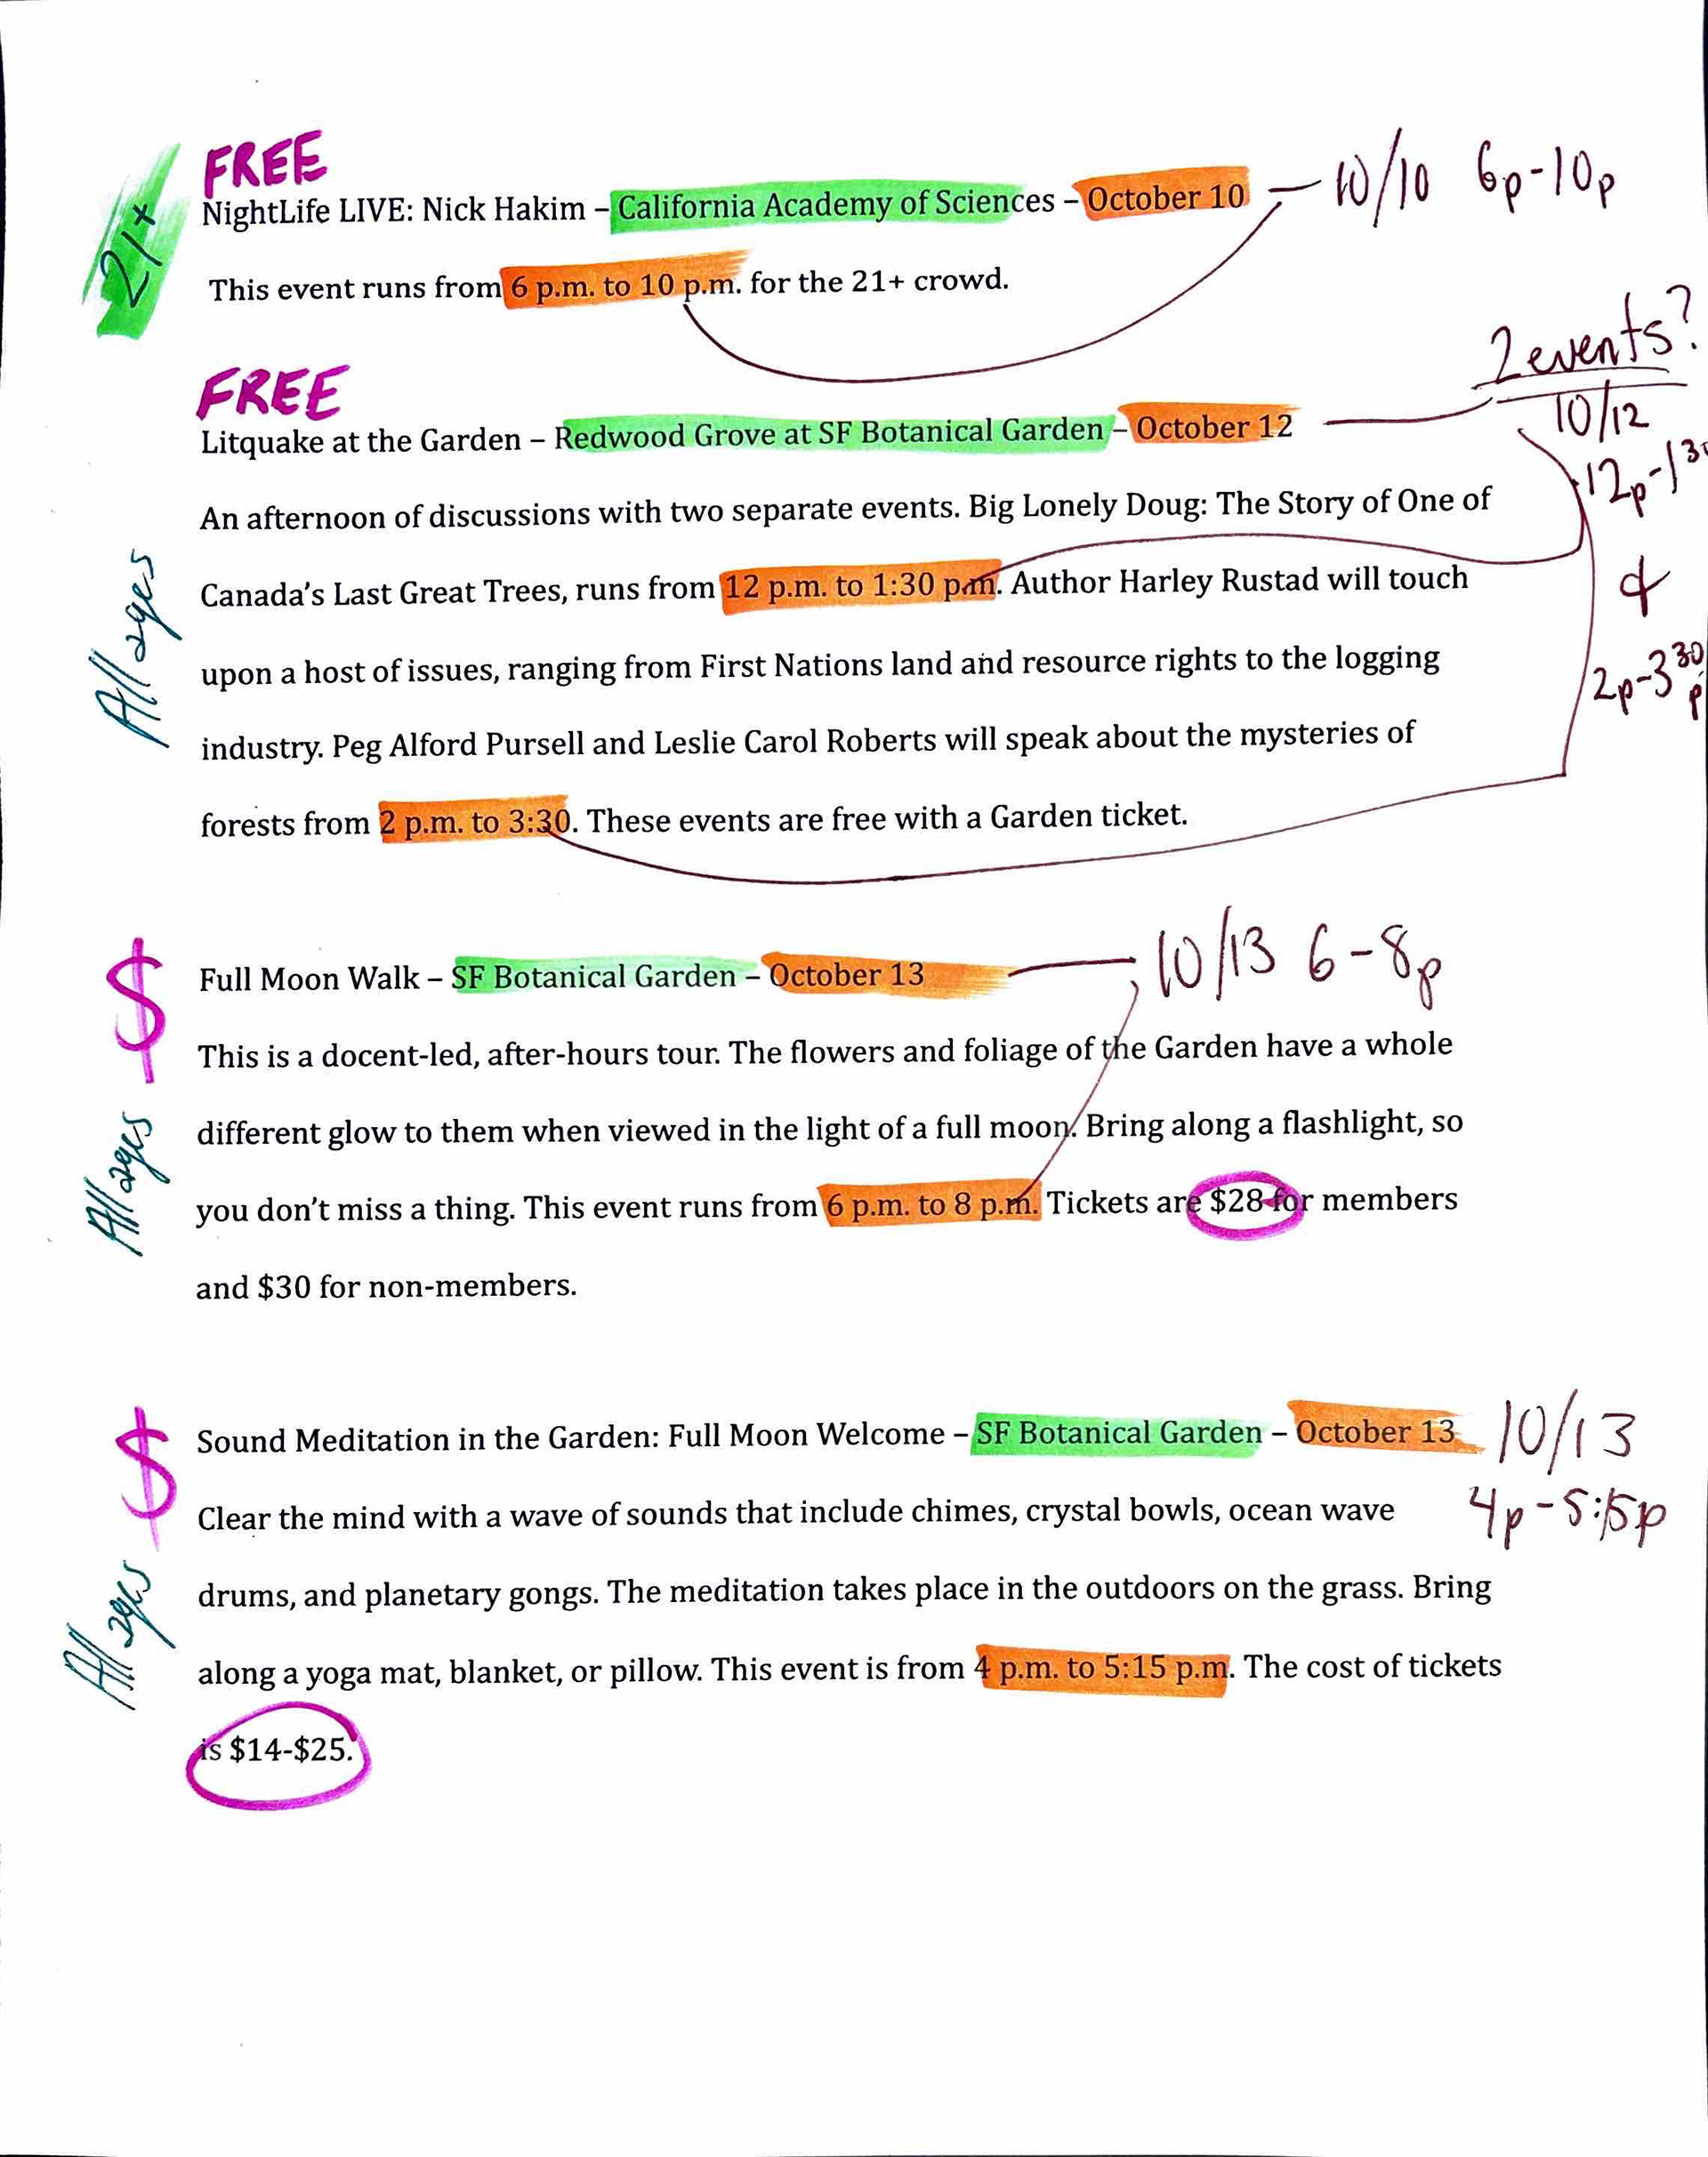 FREE
21+
NightLife LIVE: Nick Hakim – California Academy of Sciences – October 10 — 10/10 6p-10p
This event runs from 6 p.m. to 10 p.m. for the 21+ crowd.
2 events?
FREE
10/12
Litquake at the Garden – Redwood Grove at SF Botanical Garden – October 12
12p-130
An afternoon of discussions with two separate events. Big Lonely Doug: The Story of One of
All ages
Canada's Last Great Trees, runs from 12 p.m. to 1:30 p.m. Author Harley Rustad will touch
&
upon a host of issues, ranging from First Nations land and resource rights to the logging
2p-330p
industry. Peg Alford Pursell and Leslie Carol Roberts will speak about the mysteries of
forests from 2 p.m. to 3:30. These events are free with a Garden ticket.
$
Full Moon Walk – SF Botanical Garden – October 13 — 10/13 6-8p
This is a docent-led, after-hours tour. The flowers and foliage of the Garden have a whole
All ages
different glow to them when viewed in the light of a full moon. Bring along a flashlight, so
you don't miss a thing. This event runs from 6 p.m. to 8 p.m. Tickets are $28 for members
and $30 for non-members.
$
Sound Meditation in the Garden: Full Moon Welcome – SF Botanical Garden – October 13 10/13
4p-5:15p
Clear the mind with a wave of sounds that include chimes, crystal bowls, ocean wave
All ages
drums, and planetary gongs. The meditation takes place in the outdoors on the grass. Bring
along a yoga mat, blanket, or pillow. This event is from 4 p.m. to 5:15 p.m. The cost of tickets
is $14-$25.